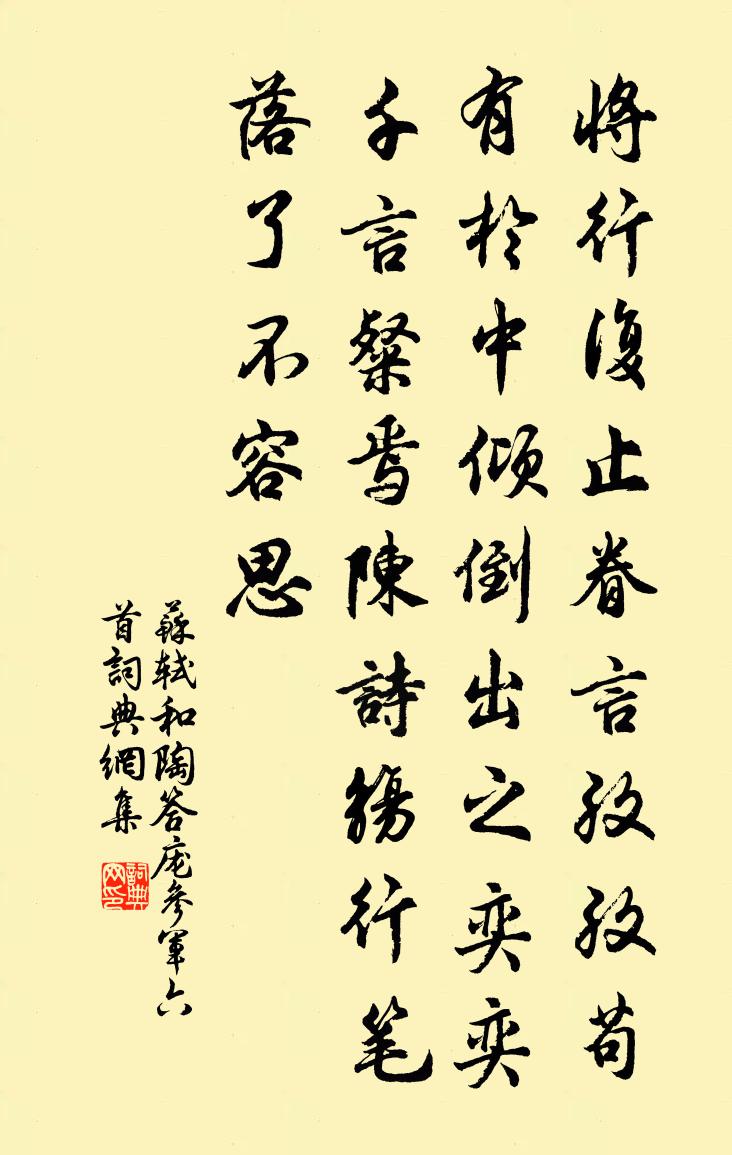 將行復止眷言孜孜苟
有於中傾倒出之奕奕
千言粲焉陳詩觴行笔
落了不容思
蘇軾和陶答庞參軍六
首詞典網集
詞典网印